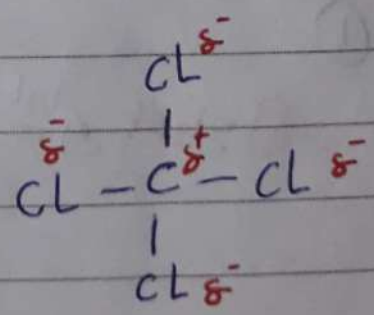 CL δ⁻
δ⁻
CL – C δ⁺ – CL δ⁻
CL δ⁻